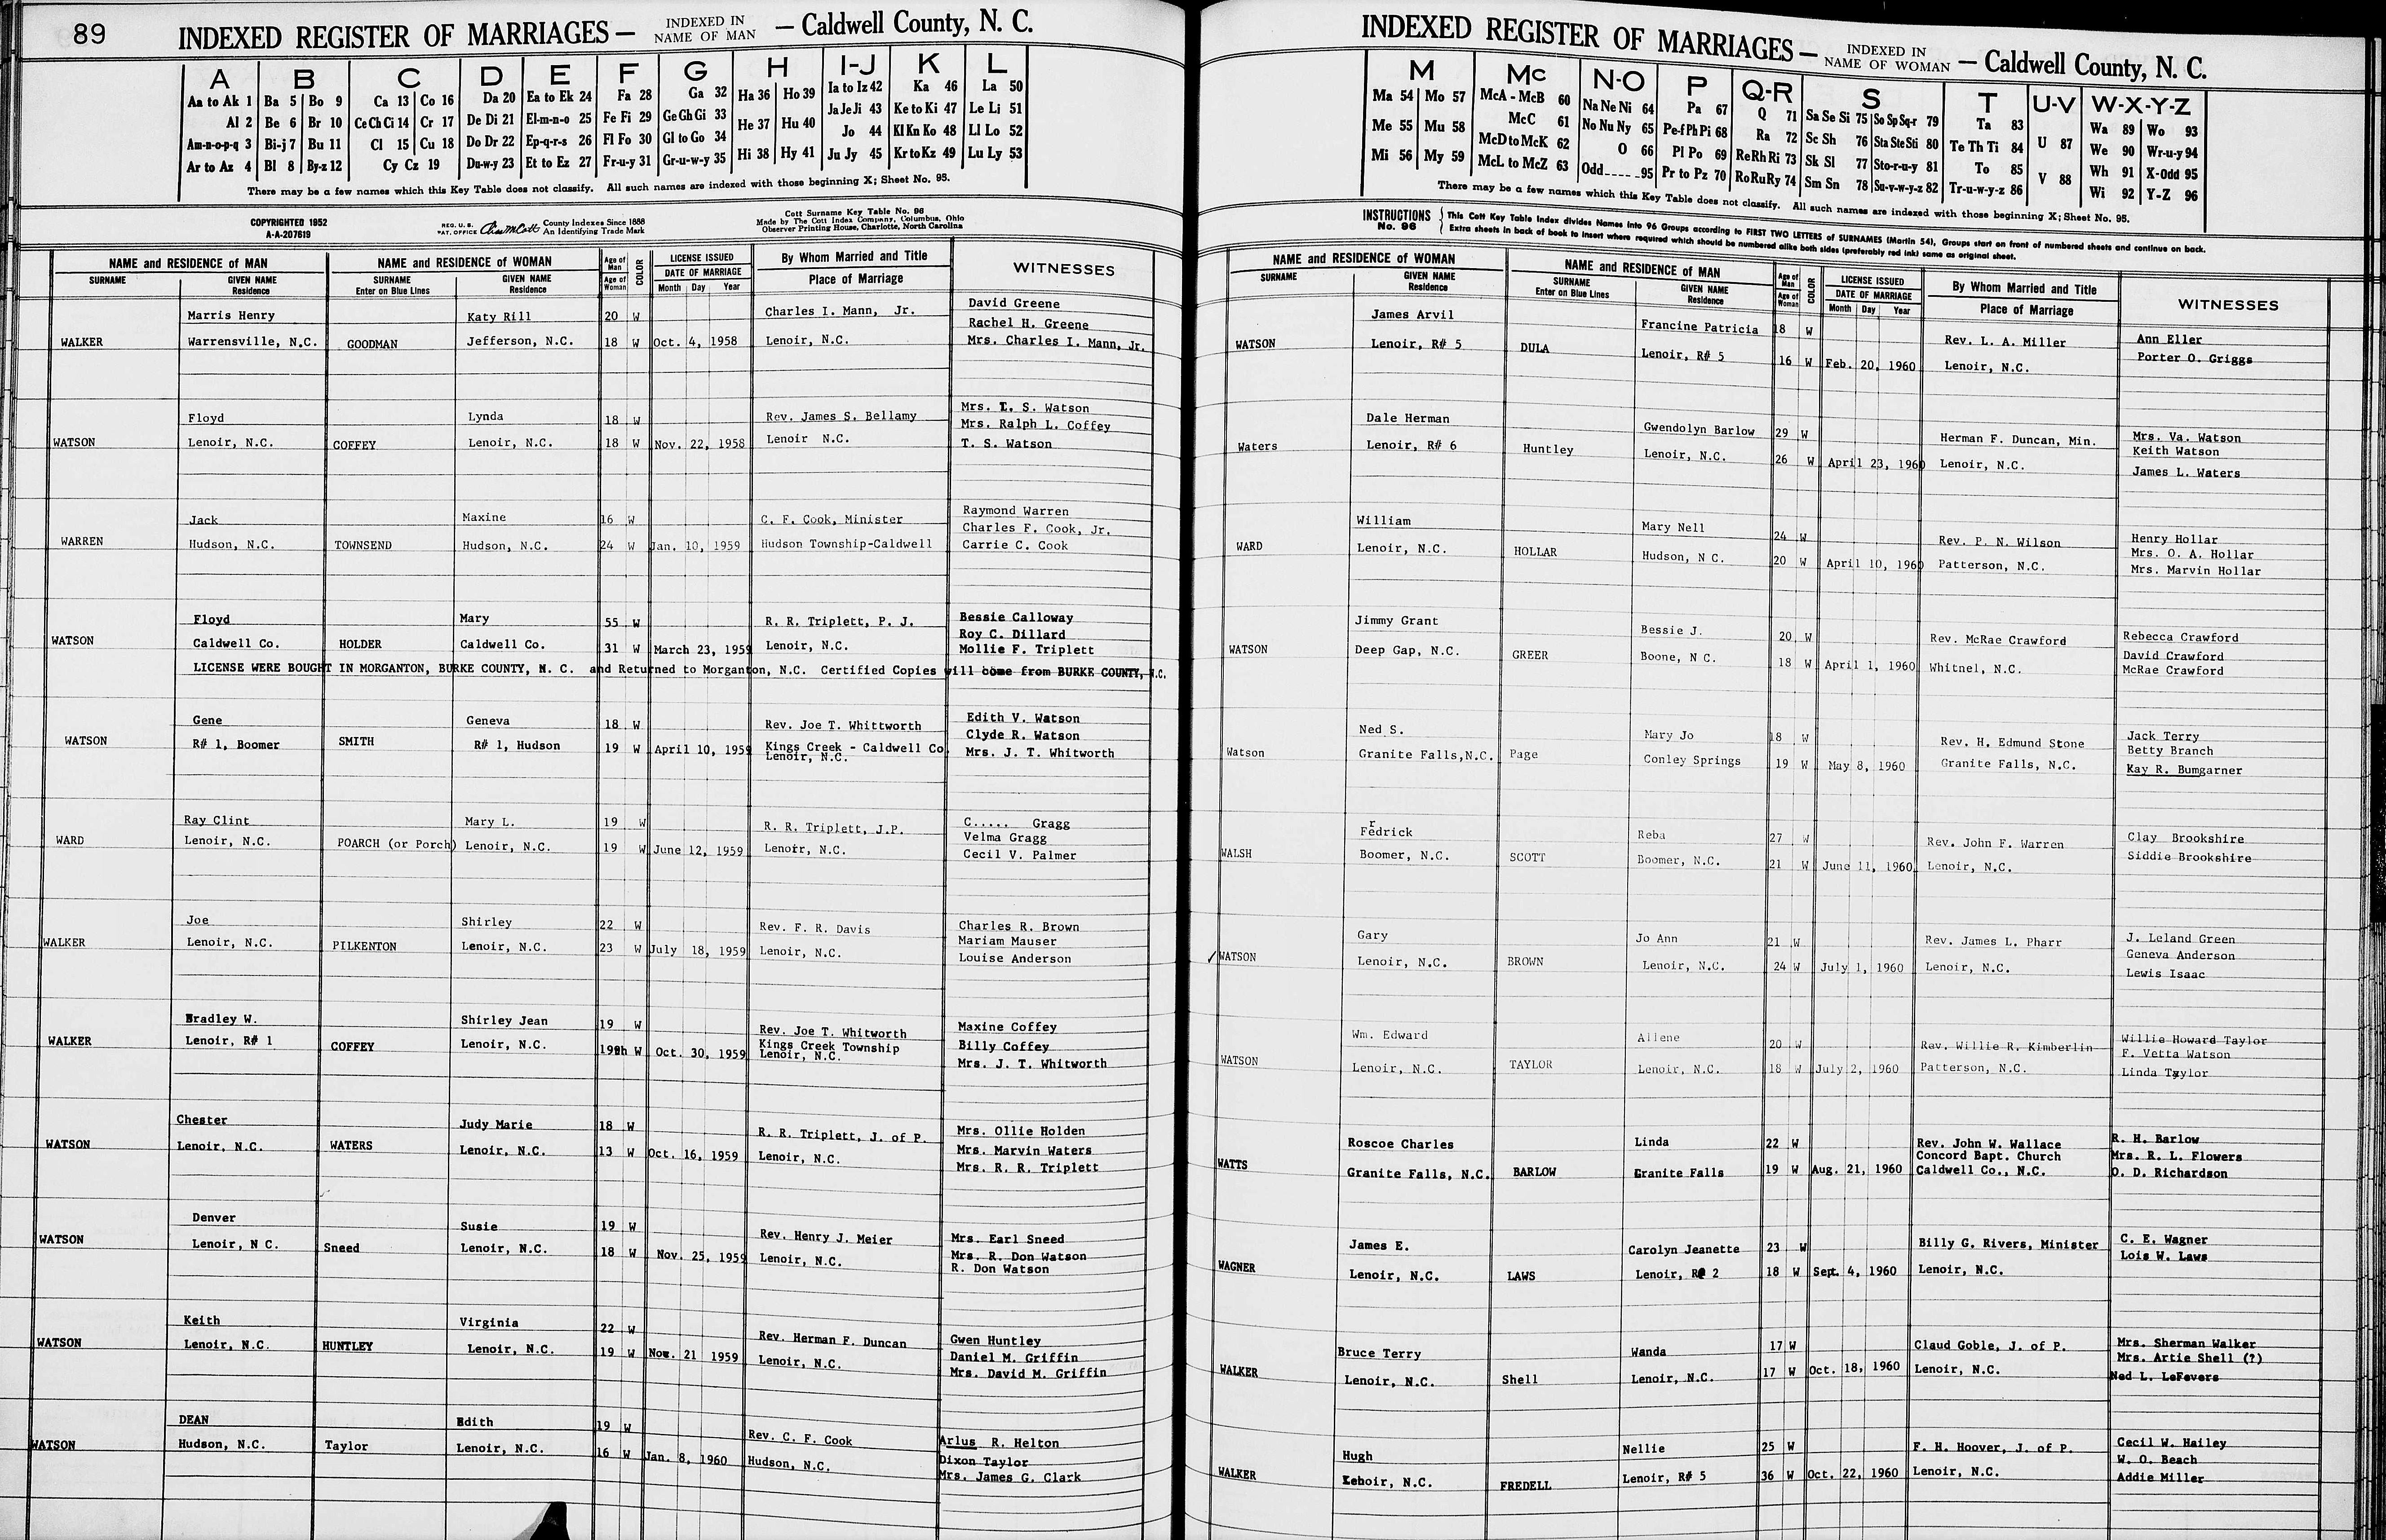 89
INDEXED REGISTER OF MARRIAGES — INDEXED IN NAME OF MAN — Caldwell County, N. C.
A B C D E F G H I-J K L
Aa to Ak 1 Ba 5 Bo 9 Ca 13 Co 16 Da 20 Ea to Ek 24 Fa 28 Ga 32 Ha 36 Ho 39 Ia to Iz 42 Ka 46 La 50
Al 2 Be 6 Br 10 Ce Ch Ci 14 Cr 17 De Di 21 El-m-n-o 25 Fe Fi 29 Ge Gh Gi 33 He 37 Hu 40 Ja Je Ji 43 Ke to Ki 47 Le Li 51
Am-n-o-p-q 3 Bi-j 7 Bu 11 Cl 15 Cu 18 Do Dr 22 Ep-q-r-s 26 Fl Fo 30 Gl to Go 34 Jo 44 Kl Kn Ko 48 Ll Lo 52
Ar to Az 4 Bl 8 By-z 12 Cy Cz 19 Du-w-y 23 Et to Ez 27 Fr-u-y 31 Gr-u-w-y 35 Hi 38 Hy 41 Ju Jy 45 Kr to Kz 49 Lu Ly 53
There may be a few names which this Key Table does not classify. All such names are indexed with those beginning X; Sheet No. 95.
COPYRIGHTED 1952
A-A-207619
REG. U. S. PAT. OFFICE
County Indexes Since 1888
An Identifying Trade Mark
Cott Surname Key Table No. 96
Made by The Cott Index Company, Columbus, Ohio
Observer Printing House, Charlotte, North Carolina
NAME and RESIDENCE of MAN NAME and RESIDENCE of WOMAN Age of Man COLOR LICENSE ISSUED By Whom Married and Title WITNESSES
SURNAME GIVEN NAME Residence SURNAME Enter on Blue Lines GIVEN NAME Residence Age of Woman DATE OF MARRIAGE Month Day Year Place of Marriage
Marris Henry Katy Rill 20 W Charles I. Mann, Jr. David Greene
Rachel H. Greene
WALKER Warrensville, N.C. GOODMAN Jefferson, N.C. 18 W Oct. 4, 1958 Lenoir, N.C. Mrs. Charles I. Mann, Jr.
Floyd Lynda 18 W Rev. James S. Bellamy Mrs. T. S. Watson
Mrs. Ralph L. Coffey
WATSON Lenoir, N.C. COFFEY Lenoir, N.C. 18 W Nov. 22, 1958 Lenoir N.C. T. S. Watson
Jack Maxine 16 W C. F. Cook, Minister Raymond Warren
Charles F. Cook, Jr.
WARREN Hudson, N.C. TOWNSEND Hudson, N.C. 24 W Jan. 10, 1959 Hudson Township-Caldwell Carrie C. Cook
Floyd Mary 55 W R. R. Triplett, P. J. Bessie Calloway
Roy C. Dillard
WATSON Caldwell Co. HOLDER Caldwell Co. 31 W March 23, 1959 Lenoir, N.C. Mollie F. Triplett
LICENSE WERE BOUGHT IN MORGANTON, BURKE COUNTY, N. C. and Returned to Morganton, N.C. Certified Copies will come from BURKE COUNTY, N.C.
Gene Geneva 18 W Rev. Joe T. Whittworth Edith V. Watson
Clyde R. Watson
WATSON R# 1, Boomer SMITH R# 1, Hudson 19 W April 10, 1959 Kings Creek - Caldwell Co Mrs. J. T. Whitworth
Lenoir, N.C.
Ray Clint Mary L. 19 W R. R. Triplett, J.P. C..... Gragg
Velma Gragg
WARD Lenoir, N.C. POARCH (or Porch) Lenoir, N.C. 19 W June 12, 1959 Lenoir, N.C. Cecil V. Palmer
Joe Shirley 22 W Rev. F. R. Davis Charles R. Brown
Mariam Mauser
WALKER Lenoir, N.C. PILKENTON Lenoir, N.C. 23 W July 18, 1959 Lenoir, N.C. Louise Anderson
Bradley W. Shirley Jean 19 W Rev. Joe T. Whitworth Maxine Coffey
Kings Creek Township Billy Coffey
WALKER Lenoir, R# 1 COFFEY Lenoir, N.C. W Oct. 30, 1959 Lenoir, N.C. Mrs. J. T. Whitworth
Chester Judy Marie 18 W R. R. Triplett, J. of P. Mrs. Ollie Holden
Mrs. Marvin Waters
WATSON Lenoir, N.C. WATERS Lenoir, N.C. 13 W Oct. 16, 1959 Lenoir, N.C. Mrs. R. R. Triplett
Denver Susie 19 W Rev. Henry J. Meier Mrs. Earl Sneed
Mrs. R. Don Watson
WATSON Lenoir, N C. Sneed Lenoir, N.C. 18 W Nov. 25, 1959 Lenoir, N.C. R. Don Watson
Keith Virginia 22 W Rev. Herman F. Duncan Gwen Huntley
Daniel M. Griffin
WATSON Lenoir, N.C. HUNTLEY Lenoir, N.C. 19 W Nov. 21 1959 Lenoir, N.C. Mrs. David M. Griffin
DEAN Edith 19 W Rev. C. F. Cook Arlus R. Helton
Dixon Taylor
WATSON Hudson, N.C. Taylor Lenoir, N.C. 16 W Jan. 8, 1960 Hudson, N.C. Mrs. James G. Clark
INDEXED REGISTER OF MARRIAGES — INDEXED IN NAME OF WOMAN — Caldwell County, N. C.
M Mc N-O P Q-R S T U-V W-X-Y-Z
Ma 54 Mo 57 McA - McB 60 Na Ne Ni 64 Pa 67 Q 71 Sa Se Si 75 So Sp Sq-r 79 Ta 83 U 87 Wa 89 Wo 93
Me 55 Mu 58 McC 61 No Nu Ny 65 Pe-f Ph Pi 68 Ra 72 Sc Sh 76 Sta Ste Sti 80 Te Th Ti 84 We 90 Wr-u-y 94
Mi 56 My 59 McD to McK 62 O 66 Pl Po 69 Re Rh Ri 73 Sk Sl 77 Sto-r-u-y 81 To 85 V 88 Wh 91 X-Odd 95
McL to McZ 63 Odd 95 Pr to Pz 70 Ro Ru Ry 74 Sm Sn 78 Su-v-w-y-z 82 Tr-u-w-y-z 86 Wi 92 Y-Z 96
There may be a few names which this Key Table does not classify. All such names are indexed with those beginning X; Sheet No. 95.
INSTRUCTIONS No. 96
This Cott Key Table Index divides Names into 96 Groups according to FIRST TWO LETTERS of SURNAMES (Martin 54), Groups start on front of numbered sheets and continue on back.
Extra sheets in back of book to insert where required which should be numbered alike both sides (preferably red ink) same as original sheet.
NAME and RESIDENCE of WOMAN NAME and RESIDENCE of MAN Age of Man COLOR LICENSE ISSUED By Whom Married and Title WITNESSES
SURNAME GIVEN NAME Residence SURNAME Enter on Blue Lines GIVEN NAME Residence Age of Woman DATE OF MARRIAGE Month Day Year Place of Marriage
James Arvil Francine Patricia 18 W Rev. L. A. Miller Ann Eller
Porter O. Griggs
WATSON Lenoir, R# 5 DULA Lenoir, R# 5 16 W Feb. 20, 1960 Lenoir, N.C.
Dale Herman Gwendolyn Barlow 29 W Herman F. Duncan, Min. Mrs. Va. Watson
Keith Watson
Waters Lenoir, R# 6 Huntley Lenoir, N.C. 26 W April 23, 1960 Lenoir, N.C. James L. Waters
William Mary Nell 24 W Rev. P. N. Wilson Henry Hollar
Mrs. O. A. Hollar
WARD Lenoir, N.C. HOLLAR Hudson, N C. 20 W April 10, 1960 Patterson, N.C. Mrs. Marvin Hollar
Jimmy Grant Bessie J. 20 W Rev. McRae Crawford Rebecca Crawford
David Crawford
WATSON Deep Gap, N.C. GREER Boone, N C. 18 W April 1, 1960 Whitnel, N.C. McRae Crawford
Ned S. Mary Jo 18 W Rev. H. Edmund Stone Jack Terry
Betty Branch
Watson Granite Falls,N.C. Page Conley Springs 19 W May 8, 1960 Granite Falls, N.C. Kay R. Bumgarner
r
Fedrick Reba 27 W Rev. John F. Warren Clay Brookshire
Siddie Brookshire
WALSH Boomer, N.C. SCOTT Boomer, N.C. 21 W June 11, 1960 Lenoir, N.C.
Gary Jo Ann 21 W Rev. James L. Pharr J. Leland Green
Geneva Anderson
✓ WATSON Lenoir, N.C. BROWN Lenoir, N.C. 24 W July 1, 1960 Lenoir, N.C. Lewis Isaac
Wm. Edward Allene 20 W Rev. Willie R. Kimberlin Willie Howard Taylor
F. Vetta Watson
WATSON Lenoir, N.C. TAYLOR Lenoir, N.C. 18 W July 2, 1960 Patterson, N.C. Linda Taylor
Roscoe Charles Linda 22 W Rev. John W. Wallace R. H. Barlow
Concord Bapt. Church Mrs. R. L. Flowers
WATTS Granite Falls, N.C. BARLOW Granite Falls 19 W Aug. 21, 1960 Caldwell Co., N.C. O. D. Richardson
James E. Carolyn Jeanette 23 W Billy G. Rivers, Minister C. E. Wagner
Lois W. Laws
WAGNER Lenoir, N.C. LAWS Lenoir, R# 2 18 W Sept. 4, 1960 Lenoir, N.C.
Bruce Terry Wanda 17 W Claud Goble, J. of P. Mrs. Sherman Walker
Mrs. Artie Shell (?)
WALKER Lenoir, N.C. Shell Lenoir, N.C. 17 W Oct. 18, 1960 Lenoir, N.C. Ned L. LeFevers
Hugh Nellie 25 W F. H. Hoover, J. of P. Cecil W. Hailey
W. O. Beach
WALKER Lenoir, N.C. FREDELL Lenoir, R# 5 36 W Oct. 22, 1960 Lenoir, N.C. Addie Miller